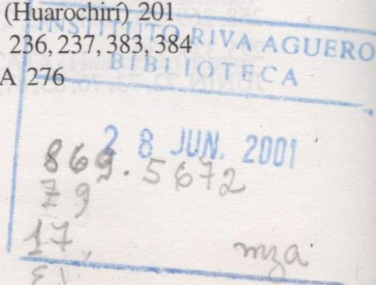 (Huarochirí) 201
236, 237, 383, 384
A 276
INSTITUTO RIVA AGUERO
BIBLIOTECA
28 JUN. 2001
869.5672
79
17
mza
EJ